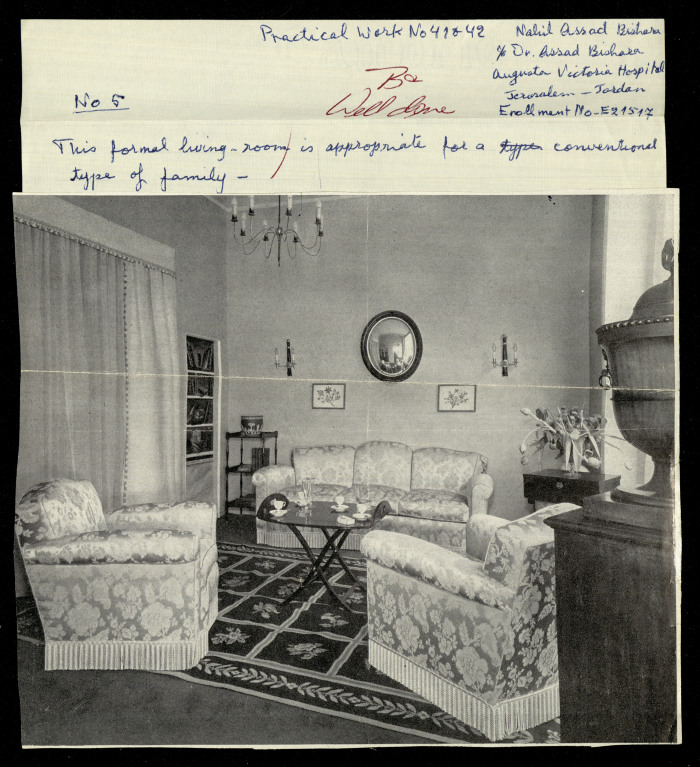 Practical Work No 41 & 42
Nahil Assad Bishara
c/o Dr. Assad Bishara
Augusta Victoria Hospital
Jerusalem - Jordan
Enrollment No - E21517
B+
Well done
No 5
This formal living-room is appropriate for a type conventional
type of family -